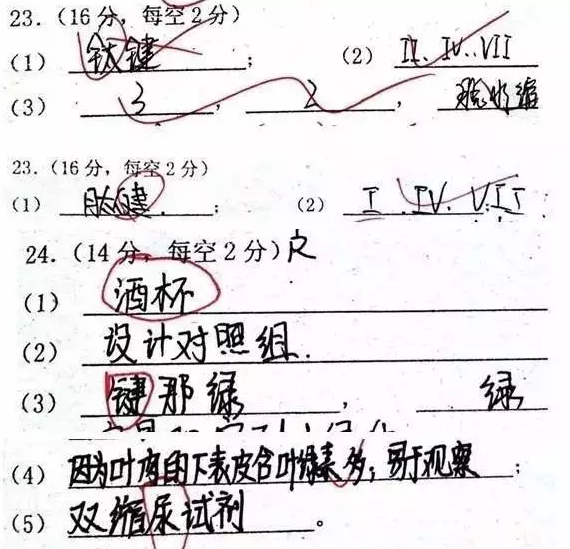 23.(16分,每空2分)
(1) 钛键; (2) II、IV、VII
(3) 3, 2, 脱水缩
23.(16分,每空2分)
(1) 肽健; (2) I、IV、VII
24.(14分,每空2分)
(1) 酒杯
(2) 设计对照组.
(3) 健那绿, 绿
(4) 因为叶片的下表皮含叶绿素多;易于观察;
(5) 双缩尿试剂。